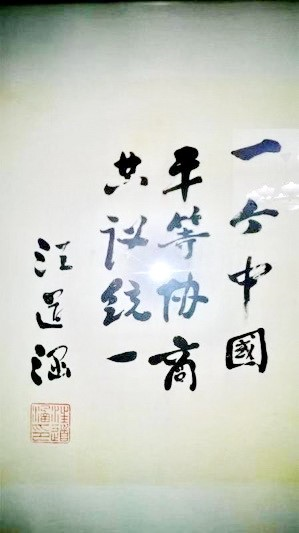 一个中國
平等协商
共议统一
汪道涵